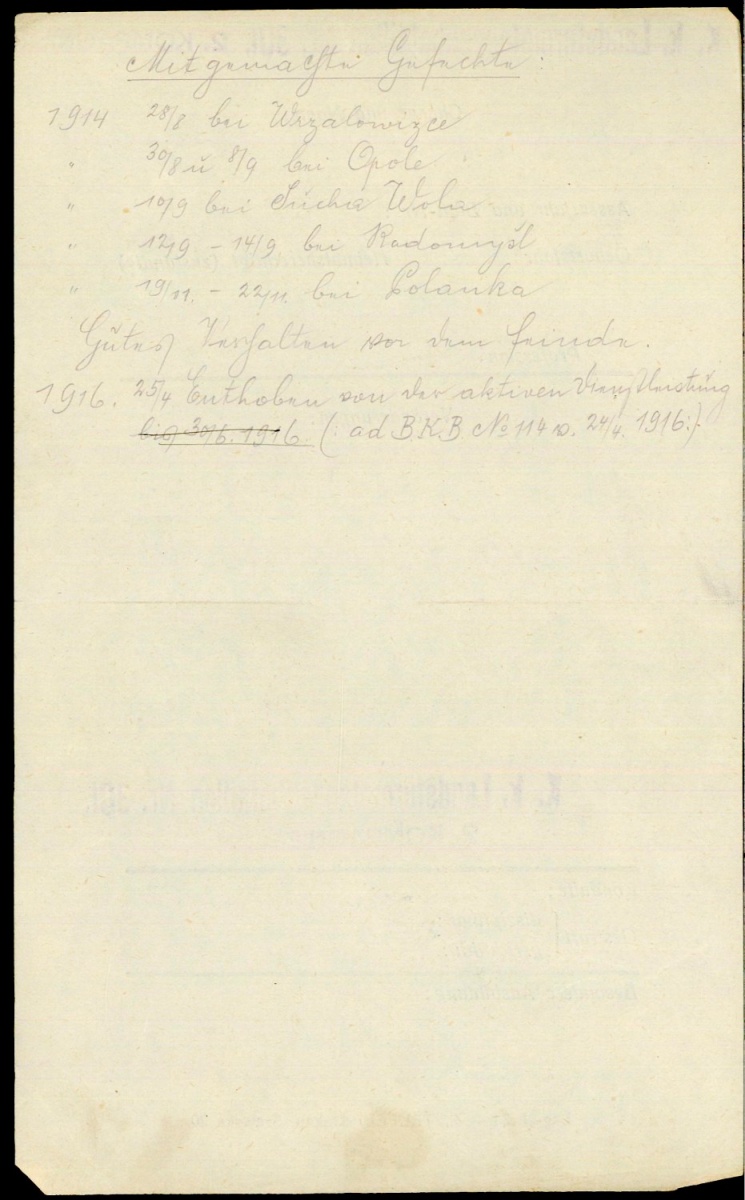 Mitgemachte Gefechte:
1914 28/8 bei Wrzalowizce
" 30/8 u 8/9 bei Opole
" 10/9 bei Sucha Wola
" 12/9. - 14/9. bei Radomyśl
" 19/11. - 22/11. bei Polanka
Gutes Verhalten vor dem Feinde.
1916. 25/4 Enthoben von der aktiven Dienstleistung
bis 30/6. 1916 (: ad BKB No 114 v. 24/4. 1916:)